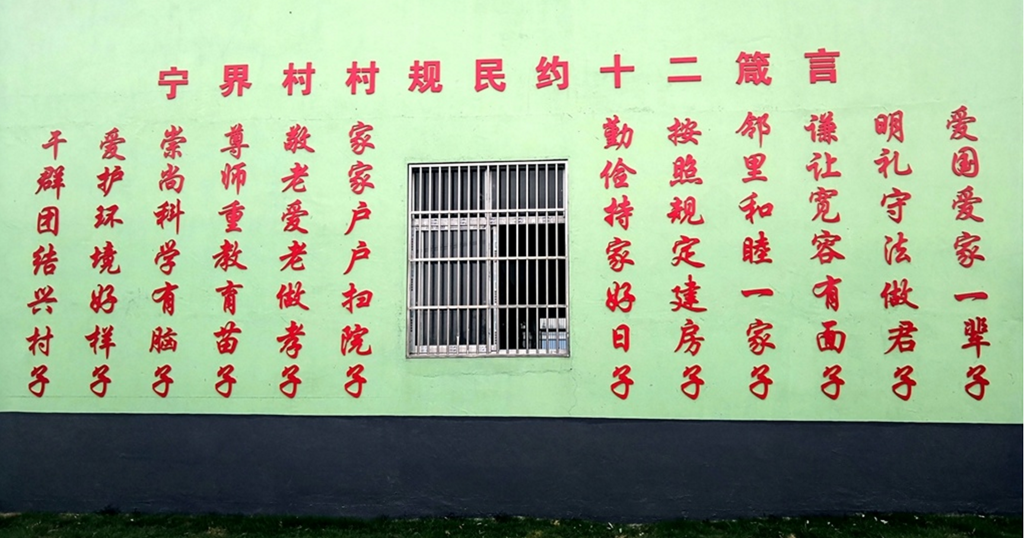 宁界村村规民约十二箴言
爱国爱家一辈子
明礼守法做君子
谦让宽容有面子
邻里和睦一家子
按照规定建房子
勤俭持家好日子
家家户户扫院子
敬老爱老做孝子
尊师重教育苗子
崇尚科学有脑子
爱护环境好样子
干群团结兴村子